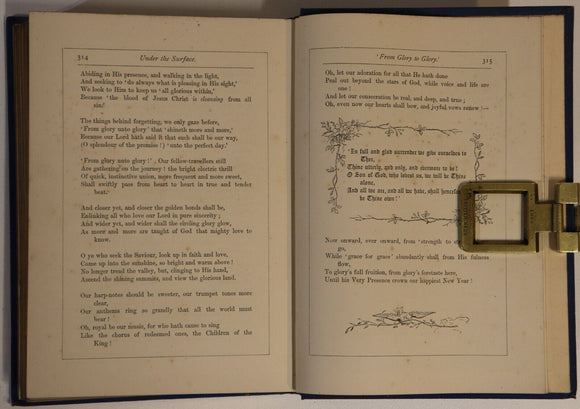 314
Under the Surface.
Abiding in His presence, and walking in the light,
And seeking to 'do always what is pleasing in His sight,'
We look to Him to keep us 'all glorious within,'
Because 'the blood of Jesus Christ is cleansing from all
sin.'
The things behind forgetting, we only gaze before,
'From glory unto glory' that 'shineth more and more,'
Because our Lord hath said it that such shall be our way,
(O splendour of the promise!) 'unto the perfect day.'
'From glory unto glory!' Our fellow-travellers still
Are gathering on the journey! the bright electric thrill
Of quick, instinctive union, more frequent and more sweet,
Shall swiftly pass from heart to heart in true and tender
beat.
And closer yet, and closer the golden bonds shall be,
Enlinking all who love our Lord in pure sincerity;
And wider yet, and wider shall the circling glory glow,
As more and more are taught of God that mighty love to
know.
O ye who seek the Saviour, look up in faith and love,
Come up into the sunshine, so bright and warm above!
No longer tread the valley, but, clinging to His hand,
Ascend the shining summits, and view the glorious land.
Our harp-notes should be sweeter, our trumpet tones more
clear,
Our anthems ring so grandly that all the world must
hear!
Oh, royal be our music, for who hath cause to sing
Like the chorus of redeemed ones, the Children of the
King!
'From Glory to Glory.'
315
Oh, let our adoration for all that He hath done
Peal out beyond the stars of God, while voice and life are
one!
And let our consecration be real, and deep, and true;
Oh, even now our hearts shall bow, and joyful vows renew:—
'In full and glad surrender we give ourselves to
Thee,
Thine utterly, and only, and evermore to be!
O Son of God, who lovest us, we will be Thine
alone,
And all we are, and all we have, shall henceforth
be Thine own!'
Now onward, ever onward, from 'strength to
go,
While 'grace for grace' abundantly shall from His fulness
flow,
To glory's full fruition, from glory's foretaste here,
Until his Very Presence crown our happiest New Year!